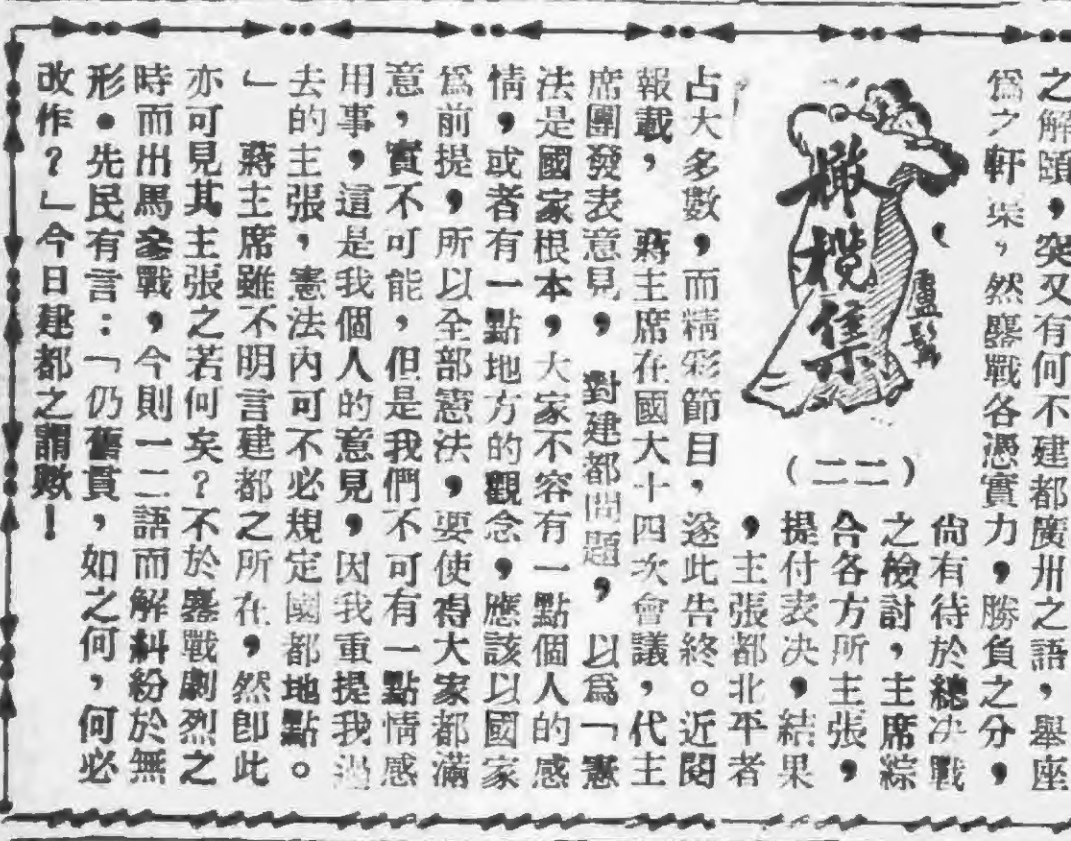 之解頤，突又有何不建都廣州之語，舉座
爲之軒渠，然鏖戰各憑實力，勝負之分，
橄欖集
盧
（二二）
尙有待於總决戰
之檢討，主席綜
合各方所主張，
提付表决，結果
，主張都北平者
占大多數，而精彩節目，遂此告終。近閱
報載，　蔣主席在國大十四次會議，代主
席團發表意見，　對建都問題，　以爲「憲
法是國家根本，大家不容有一點個人的感
情，或者有一點地方的觀念，應該以國家
爲前提，所以全部憲法，要使得大家都滿
意，實不可能，但是我們不可有一點情感
用事，這是我個人的意見，因我重提我過
去的主張，憲法內可不必規定國都地點。
」　蔣主席雖不明言建都之所在，然卽此
亦可見其主張之若何矣？不於鏖戰劇烈之
時而出馬參戰，今則一二語而解糾紛於無
形．先民有言：「仍舊貫，如之何，何必
改作？」今日建都之謂歟！